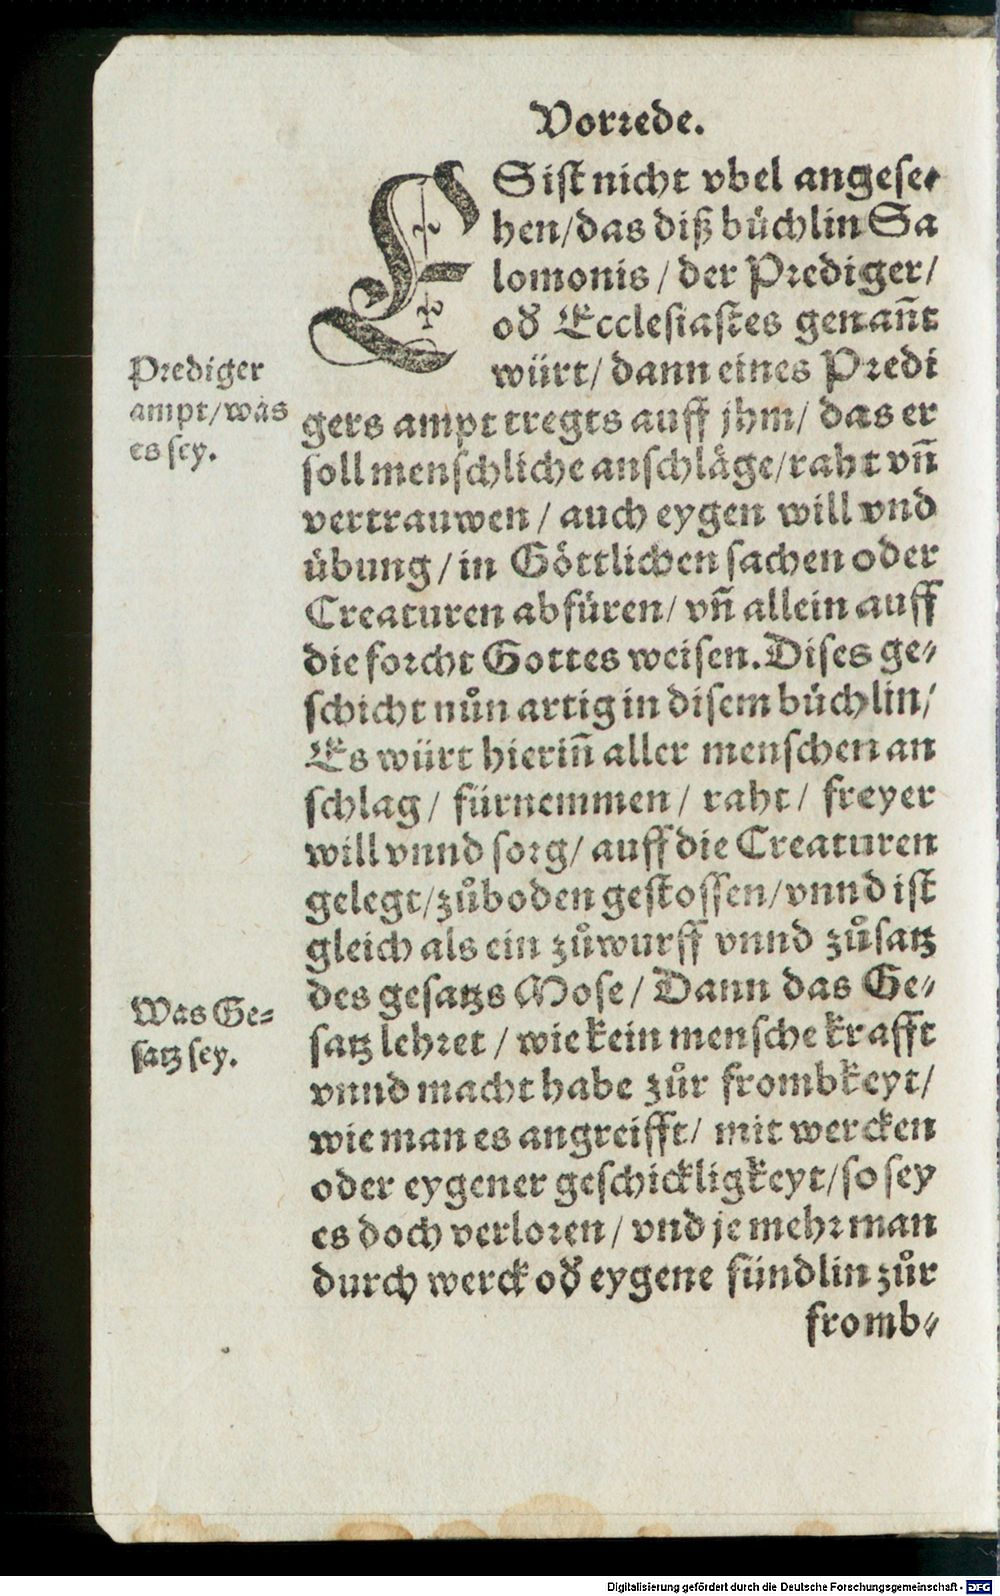 Vorrede.
ES ist nicht vbel angese⸗
hen/das diß büchlin Sa
lomonis / der Prediger/
od̄ Ecclesiastes genañt
würt/ dann eines Predi
gers ampt tregts auff jhm/ das er
soll menschliche anschläge/raht vñ
vertrauwen / auch eygen will vnd
übung / in Göttlichen sachen oder
Creaturen abfüren/ vñ allein auff
die forcht Gottes weisen. Dises ge⸗
schicht nůn artig in disem büchlin/
Es würt hieriñ aller menschen an
schlag / fürnemmen / raht / freyer
will vnnd sorg/ auff die Creaturen
gelegt/zůboden gestossen/vnnd ist
gleich als ein zůwurff vnnd zůsatz
des gesatzs Mose / Dann das Ge⸗
satz lehret / wie kein mensche krafft
vnnd macht habe zůr frombkeyt/
wie man es angreifft/ mit wercken
oder eygener geschickligkeyt/so sey
es doch verloren / vnd je mehr man
durch werck od̄ eygene fündlin zůr
fromb⸗
Prediger
ampt/was
es sey.
Was Ge⸗
satz sey.
Digitalisierung gefördert durch die Deutsche Forschungsgemeinschaft - DFG